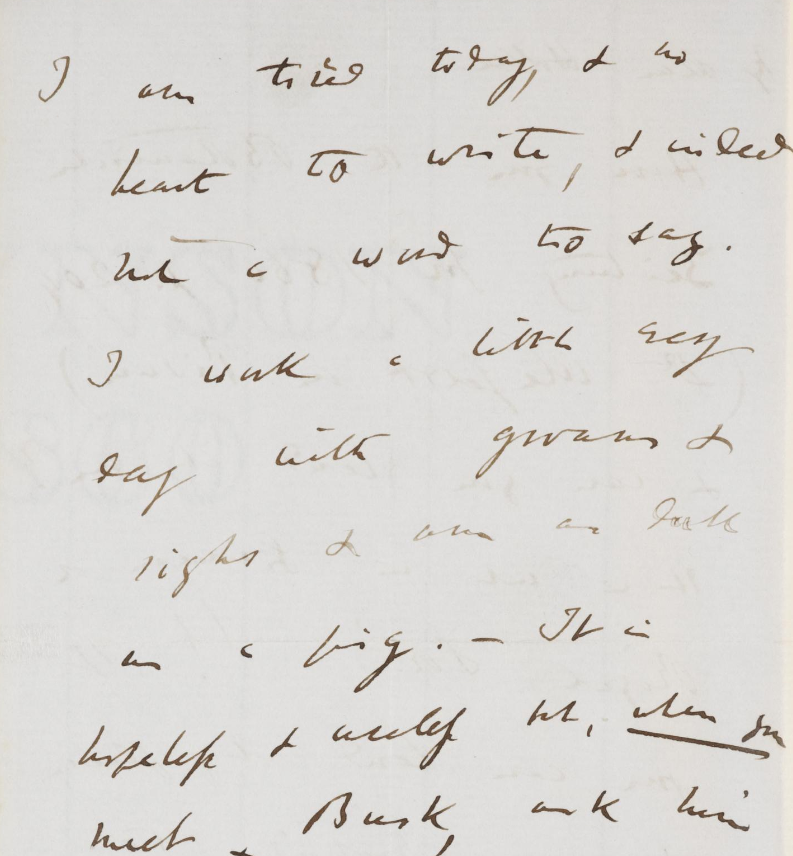 I am tired today, & no
heart to write, & indeed
not a word to say.
I work a little every
day with groans &
sighs & am as dull
as a pig. — It is
hopeless & useless but, when you
meet Busk, ask him